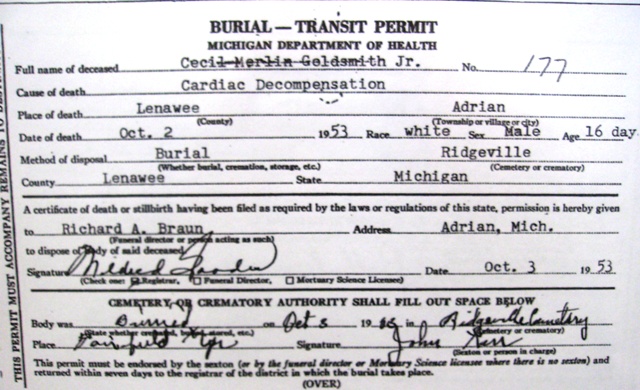 BURIAL — TRANSIT PERMIT
MICHIGAN DEPARTMENT OF HEALTH
Full name of deceased Cecil Merlin Goldsmith Jr. No. 177
Cause of death Cardiac Decompensation
Place of death Lenawee Adrian
(County) (Township or village or city)
Date of death Oct. 2 1953 Race white Sex Male Age 16 day
Method of disposal Burial Ridgeville
(Whether burial, cremation, storage, etc.) (Cemetery or crematory)
County Lenawee State Michigan
A certificate of death or stillbirth having been filed as required by the laws or regulations of this state, permission is hereby given
to Richard A. Braun Address Adrian, Mich.
(Funeral director or person acting as such)
to dispose of body of said deceased
Signature Mildred Date Oct. 3 1953
(Check one: Registrar, Funeral Director, Mortuary Science Licensee)
CEMETERY OR CREMATORY AUTHORITY SHALL FILL OUT SPACE BELOW
Body was Burried on Oct 5 19 in Ridgeville Cemetery
(State whether cremated, buried, stored, etc.) (Cemetery or crematory)
Place Fairfield Signature John
(Sexton or person in charge)
This permit must be endorsed by the sexton (or by the funeral director or Mortuary Science licensee where there is no sexton) and
returned within seven days to the registrar of the district in which the burial takes place.
(OVER)
THIS PERMIT MUST ACCOMPANY REMAINS TO